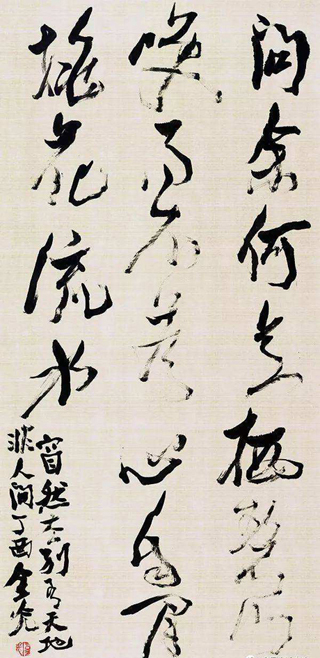 問余何意栖碧山
咲而不答心自閒
桃花流水
窅然去别有天地
非人間丁酉